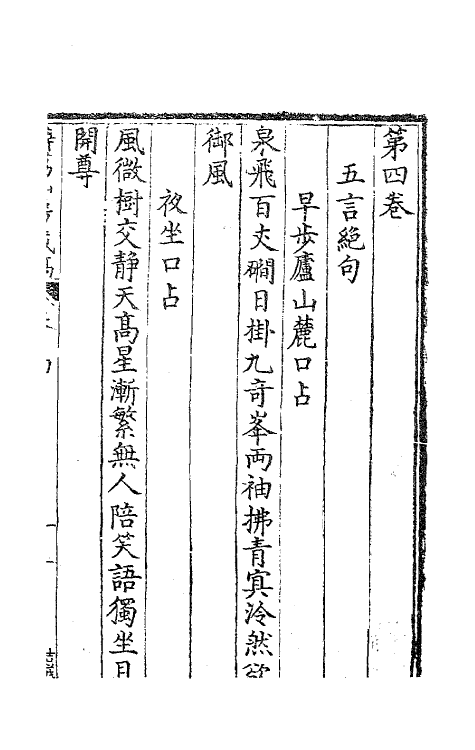 第四卷
五言絕句
早步廬山麓口占
泉飛百丈磵日掛九竒峯両袖拂青冥泠然欲
御風
夜坐口占
風微樹交靜天髙星漸繁無人陪笑語獨坐月
開尊